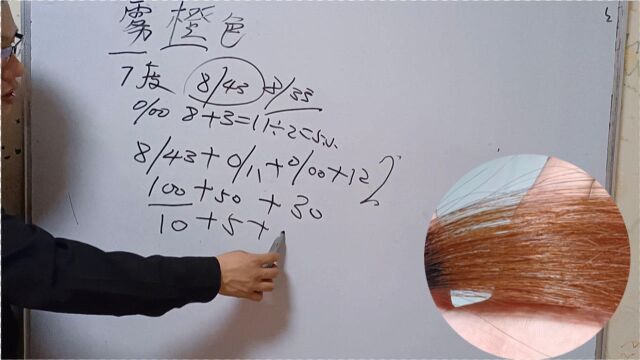 雾橙色
7度 8/43 8/33
0/00 8+3=11÷2=5.5
8/43+0/11+0/00+12
100+50+30
10+5+